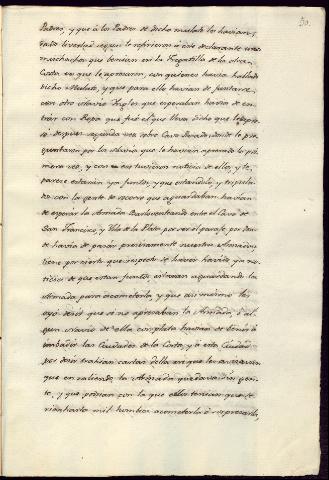 50.
Padres, y que á los Padres de dicho mulato les havian
dado livertad segun le refirieron á este declarante unos
muchachos que venian en la Fragatilla de la otra
Costa en que le apresaron, con quienes havia hablado
dicho Mulato, y que para ello havian de juntarse
con otro Navio Ingles que esperaban havia de en-
trar con Ropa que fue el que lleva dicho que le apre-
só despues segunda vez sobre Cavo donde le pre-
guntaron por la Navio que le havian apresado la pri-
mera vez, y con eso tuvieron noticia de ellos, y le
parece estarán ya juntos, y que estandolo, y tripula-
do con la gente de socorro que aguardaban havian
de esperar la Armada Barloventeando entre el Cavo de
San Francisco, y Ysla de la Plata por ser el parage por don-
de havia de pasar precisamente nuestra Armada
tiene por cierto que respecto de haver havido ya no-
ticia de que estan juntos estarian aguardando la
Armada para acometerla, y que asi mismo les
oyó decir que si no apresaban la Armada, ó al-
gun Navio de ella complata havian de benir á
imbadir las Ciudades de la Costa, y á esta Ciudad
por decir trahian cartas della en que les
que en saliendo la Armada quedava sin gen-
te, y que ponian con la que ellos tenian que se-
rian hasta mil hombres acometerla ó represarla,